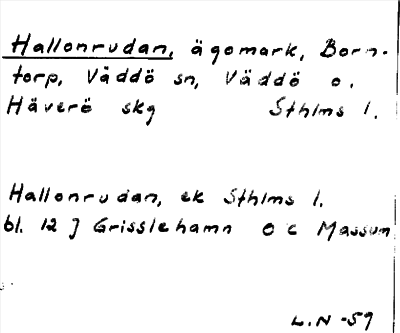 Hallonrudan, ägomark, Born-
torp, Väddö sn, Väddö o.
Häverö skg Sthlms l.
Hallonrudan, ek Sthlms l.
bl. 12 J Grisslehamn o c Massum
L.N -59